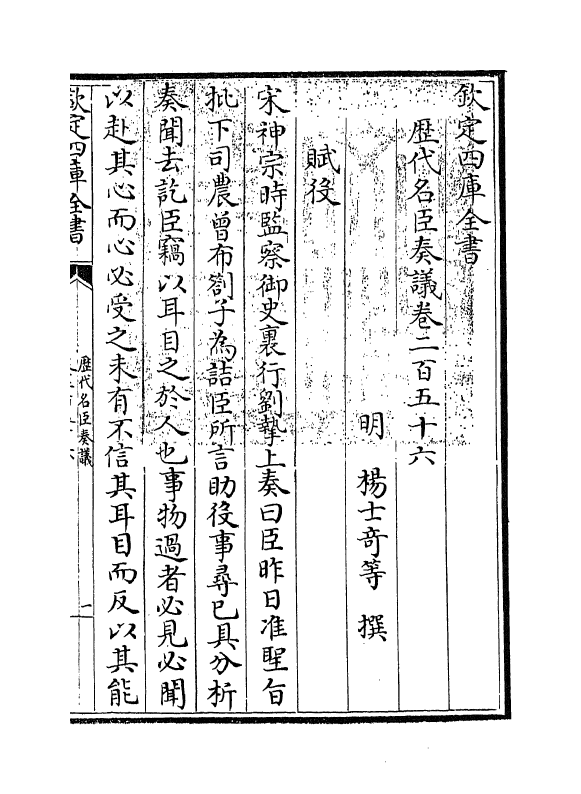 欽定四庫全書
歴代名臣奏議卷二百五十六
明　楊士竒等　撰
賦役
宋神宗時監察御史裏行劉摯上奏曰臣昨日准聖旨
批下司農曾布劄子為詰臣所言助役事尋已具分析
奏聞去訖臣竊以耳目之於人也事物過者必見必聞
以赴其心而心必受之未有不信其耳目而反以其能
欽定四庫全書
歴代名臣奏議
一